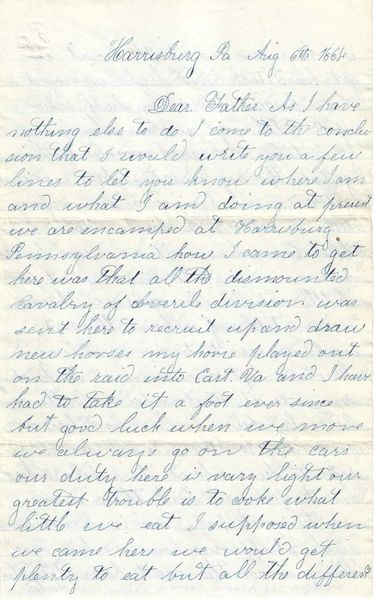 Harrisburg Pa Aug 6th 1864
Dear Father As I have
nothing else to do I come to the conclu
sion that I would write you a few
lines to let you know where I am
and what I am doing at present
we are encamped at Harrisburg
Pennsylvania how I came to get
here was that all the dismounted
Cavalry of Averile division was
sent here to recruit up and draw
new horses my horse played out
on the raid into East. Va and I have
had to take it a foot ever since
but good luck when we move
we always go on the cars
our duty here is vary light our
greatest trouble is to cooke what
little we eat I supposed when
we came here we would get
plenty to eat but all the differenc